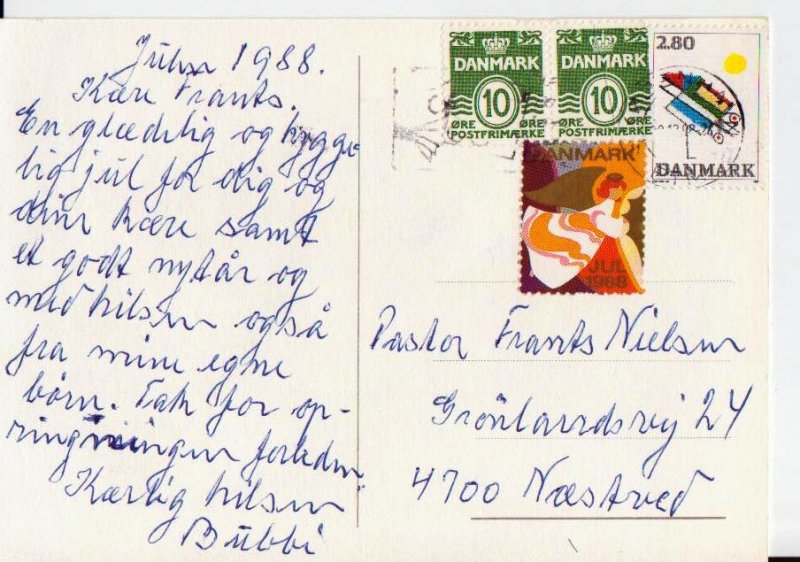 Julen 1988.
Kære Frants.
En glædelig og hygge-
lig jul for dig og
dine kære samt
et godt nytår og
med hilsen også
fra mine egne
børn. Tak for op-
ringningen forleden
Kærlig hilsen
Bübbi
DANMARK
10
ØRE ØRE
POSTFRIMÆRKE
DANMARK
10
ØRE ØRE
POSTFRIMÆRKE
2.80
DANMARK
DANMARK
JUL
1988
Pastor Frants Nielsen
Grönlandsvej 24
4700 Næstved